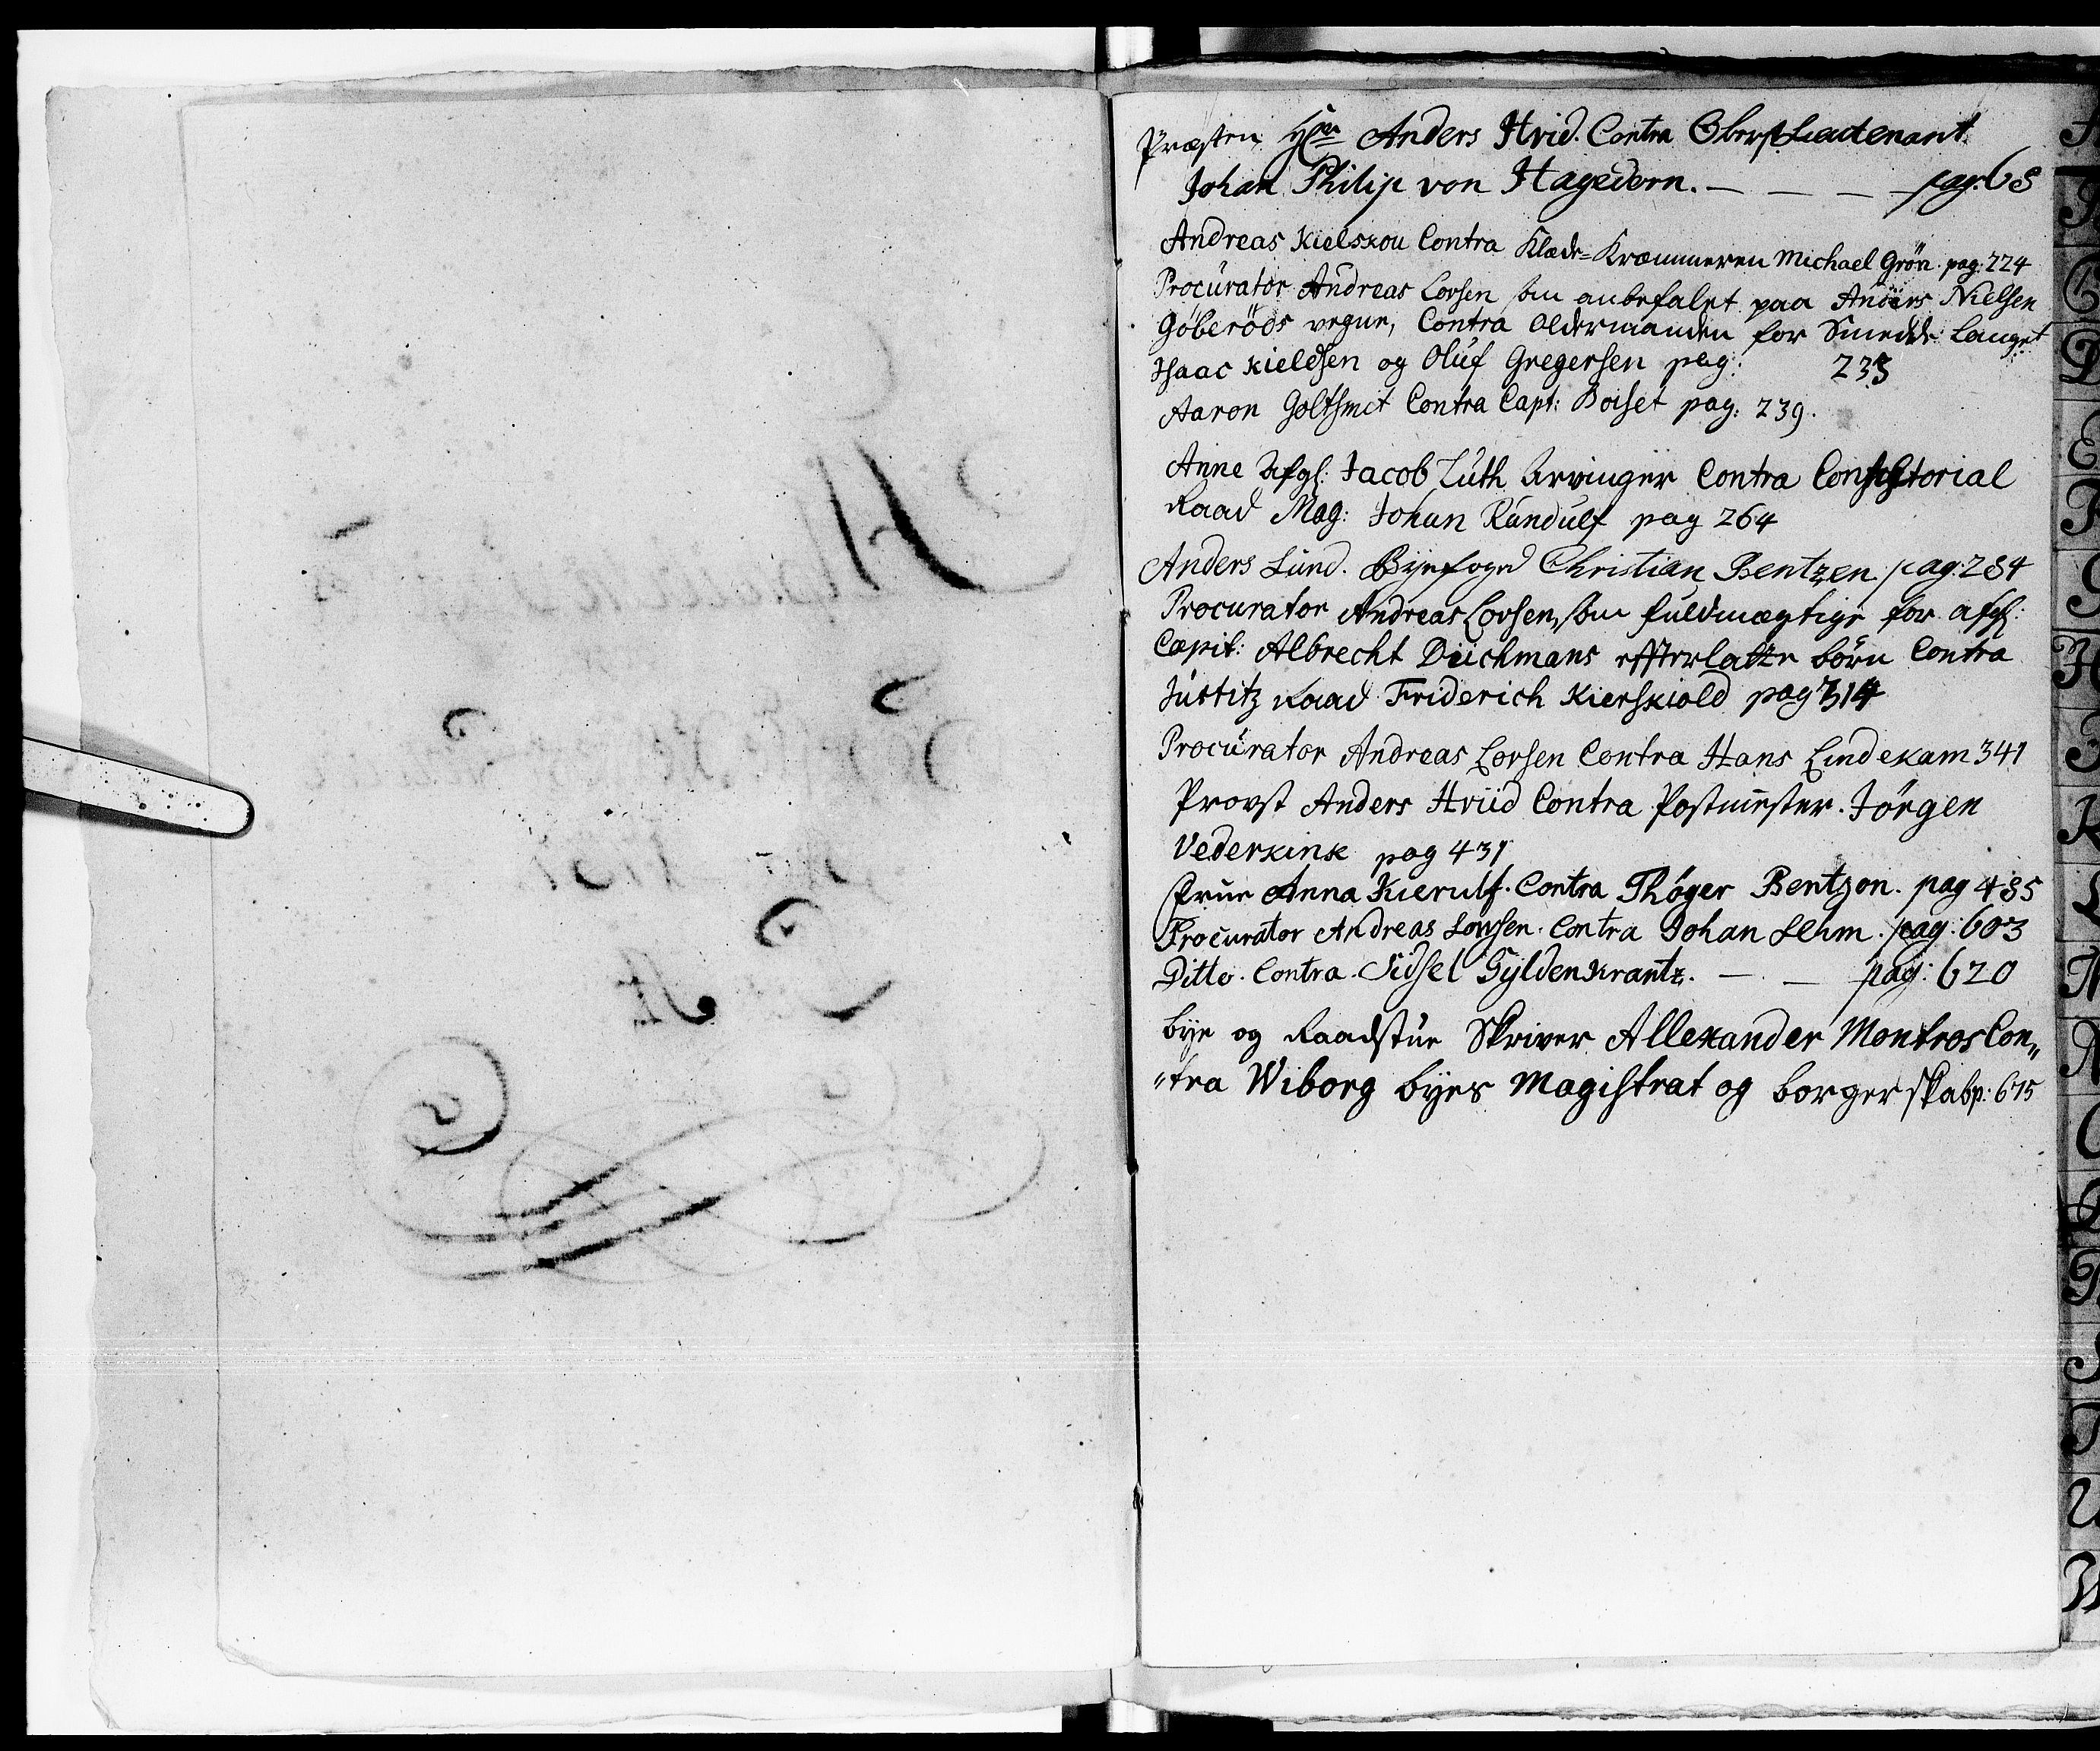 Præsten Hr Anders Hvid. Contra OberstLieutenant
Johan Philip von Hagedorn. — — — pag: 68
Andreas Kielskou Contra Klæde=Kræmmeren Michael Grön. pag: 224
Procurator Andreas Lovsen som anbefalet paa Anders Nielsen
Göberöds vegne, Contra Oldermanden for Smedde Lauget
Isaac Kieldsen og Oluf Gregersen pag: 235
Aaron Goltsmet Contra Capt: Boiset pag: 239.
Anne Afgl: Jacob Luth Arvinger Contra Consistorial
Raad Mag: Johan Randulf pag 264
Anders Lund. Byefoged Christian Bentzen. pag: 284
Procurator Andreas Lovsen, som fuldmægtige for afgl:
Capit: Albrecht Deichmans effterlatte börn Contra
Justitz Raad Friderich Kierskiold pag 314
Procurator Andreas Lovsen Contra Hans Lindekam 341
Provst Anders Hviid Contra Postmester. Jörgen
Vederkink pag 431
Frue Anna Kierulf. Contra Thöger Bentzon. pag 485
Procurator Andreas Lovsen. Contra Johan Lehm. pag: 603
Ditto. Contra. Sidsel Gyldenkrantz. — — pag: 620
bye og Raadstue Skriver Allexander Montros Con„
„tra Wiborg byes Magistrat og borgerskab p: 675